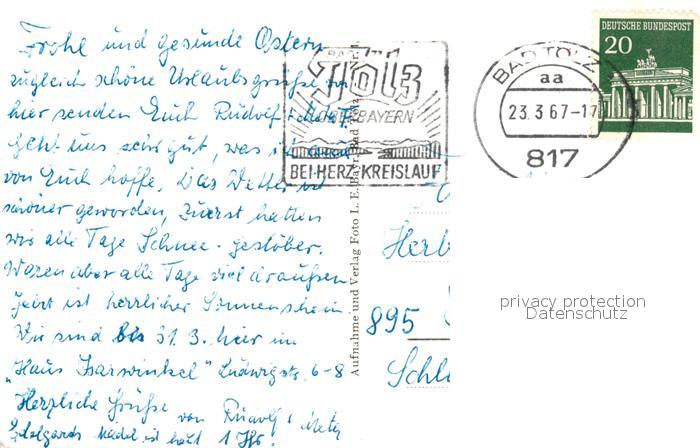 Frohe und gesunde Ostern
zugleich schöne Urlaubsgrüße von
hier senden Euch Rudolf +
geht uns sehr gut, was
von Euch hoffe. Das Wetter ist
schöner geworden, zuerst hatten
wir alle Tage Schnee-gestöber.
Waren aber alle Tage viel draußen
Jetzt ist herrlicher Sonnenschein.
Wir sind bis 31.3. hier im
"Haus Isarwinkel" Ludwigstr. 6-8
Herzliche Grüße von Rudolf + Meta
ist bald 1 Jhr.
BAD
Tölz
OBERBAYERN
BEI HERZ-KREISLAUF
BAD TÖLZ
aa
23.3.67-17
817
DEUTSCHE BUNDESPOST
20
Aufnahme und Verlag Foto L. E. Bayr, Bad
Herb
895
Schl
privacy protection
Datenschutz